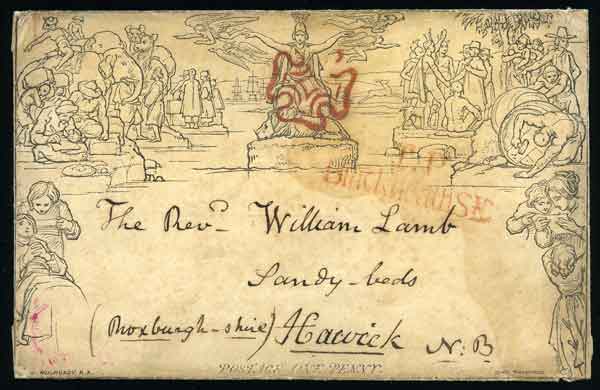 T.P
The Revd. William Lamb
Sandy-beds
(Roxburgh-shire) Hawick N:B
POSTAGE ONE PENNY.
W. MULREADY, R.A.